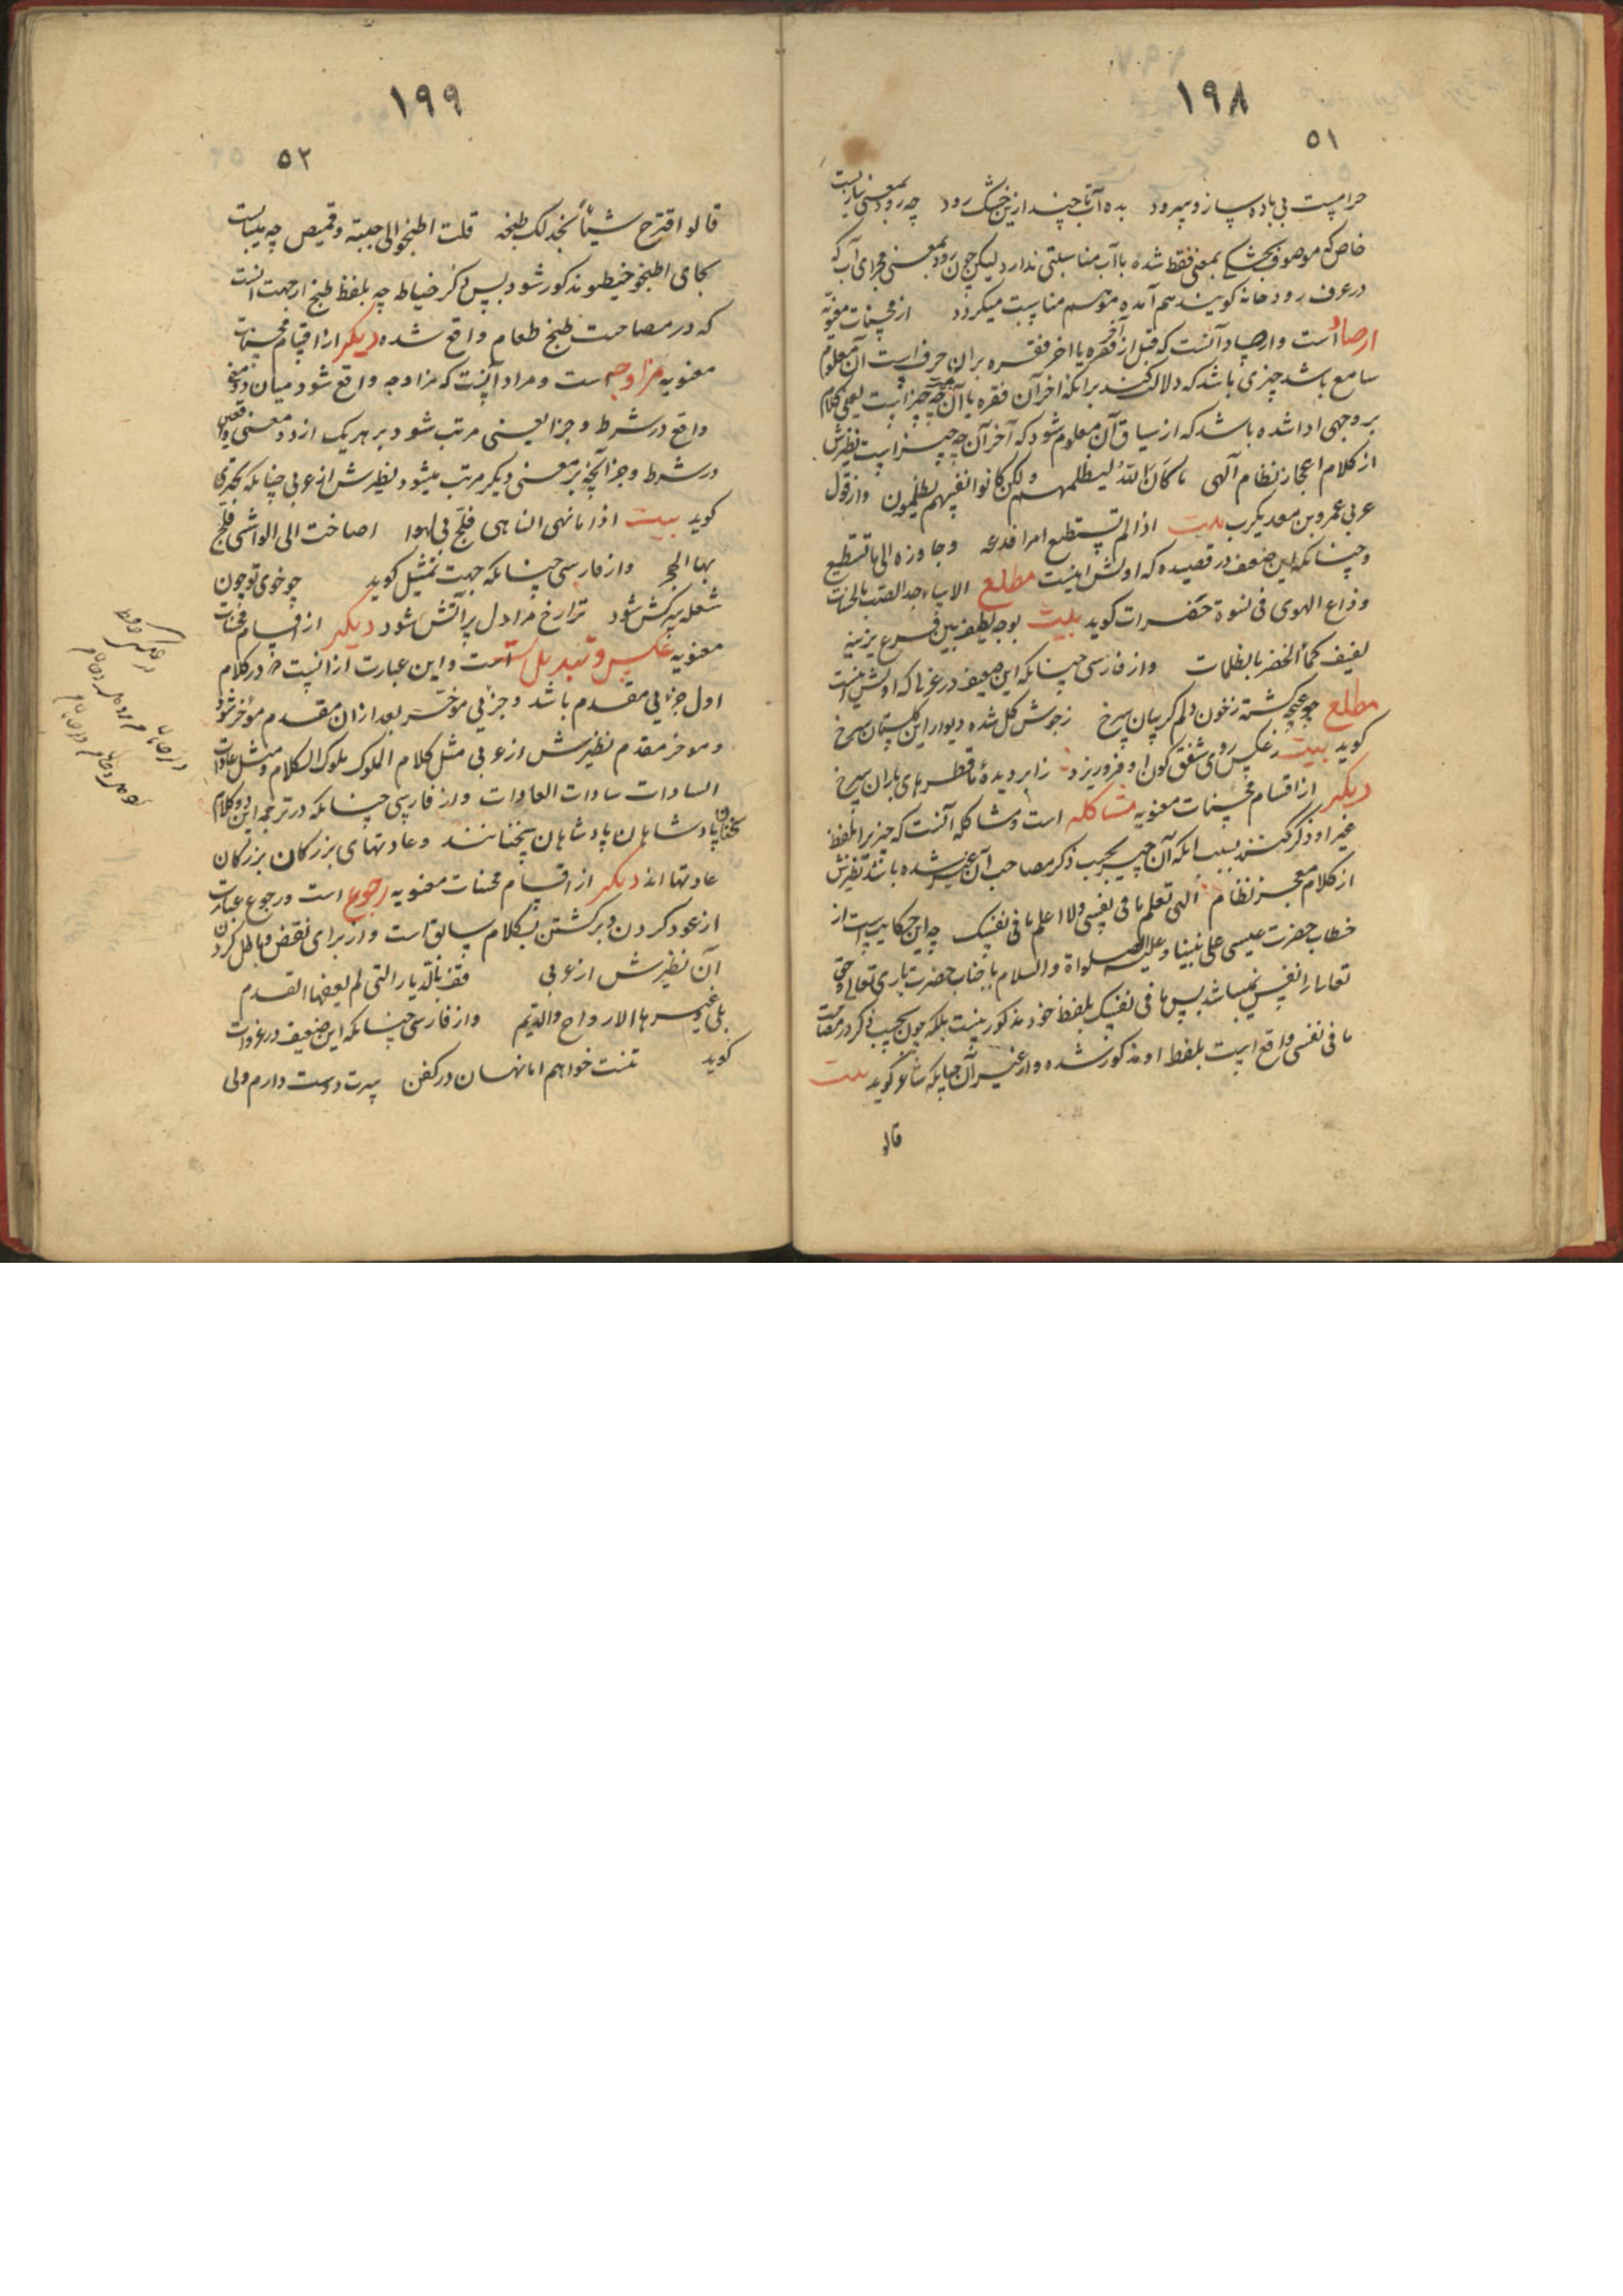 ۱۹۸
۵۱
حرامست بی باده ساز و سرود بده آب تا چند ازین خشک رود چه رود بمعنی سازیست
خاص که موصوف بخشکی بمعنی فقط شده با آب مناسبتی ندارد لیکن چون رود بمعنی مجرای آب که
در عرف رودخانه کویند هم آمده موهم مناسبت میکردد از محسنات معنویه
ارصاد است و ارصاد آنست که قبل از آخر فقره یا اخر فقره بران حرف است آن معلوم
سامع باشد چیزی باشد که دلالت کند برانکه اخر آن فقره یا آن چه چیز است یعنی کلام
بر وجهی ادا شده باشد که از سیاق آن معلوم شود که آخر آن چه چیز است نظیرش
از کلام اعجاز نظام آلهی ما کان الله لیظلمهم ولکن کانوا انفسهم یظلمون و از قول
عربی عمرو بن معدیکرب بیت اذا لم تستطع امرا فدعه وجاوزه الی ما تستطیع
و چنانکه این ضعیف در قصیده که اولش اینست مطلع الا یا
و ذاع الهوی فی نسوة خضرات کوید بیت بوجه لطیف بین فرع یزینه
لفیف کماء الخضر بالظلمات و از فارسی چنانکه این ضعیف در غزلی که اولش اینست
مطلع چو غنچه کشته ز خون دلم کریبان سرخ ز جوش کل شده دیوار این کلستان سرخ
کوید بیت ز عکس روی شفق کون او فرو ریزد ز ابر دیدهٔ ما قطرهای باران سرخ
دیکر از اقسام محسنات معنویه مشاکله است و مشاکله آنست که چیزیرا بلفظ
غیر او ذکر کنند بسبب انکه آن چیز بحسب ذکر مصاحب آن غیر شده باشد نظیرش
از کلام معجز نظام الهی تعلم ما فی نفسی ولا اعلم ما فی نفسک چه این حکایت است از
خطاب حضرت عیسی علی نبینا و علیه الصلواة والسلام با جناب حضرت باری تعالی و حق
تعالی را نفس نمیباشد پس ما فی نفسک بلفظ خود مذکور نیست بلکه چون بحسب ذکر در مصاحبت
ما فی نفسی واقع است بلفظ او مذکور شده و از غیر آن چنانکه شاعر کوید بیت
قالو
۱۹۹
۵۲
قالو اقترح شیئاً نجد لک طبخه قلت اطبخوا لی جبة وقمیص چه میبایست
بجای اطبخو خیطو مذکور شود پس ذکر خیاط چه بلفظ طبخ از جهت آنست
که در مصاحبت طبخ طعام واقع شده دیکر از اقسام محسنات
معنویه مزاوجه است و مراد آنست که مزاوجه واقع شود میان دو معنی
واقع در شرط و جزا یعنی مرتب شود بر هر یک از دو معنی واقعی
در شرط و جزا آنچه بر معنی دیکر مرتب میشود نظیرش از عربی چنانکه بحتری
کوید بیت اذا ما نهی الناهی فلج فی لهوا اصاخت الی الواشی فلج
بها الهجر و از فارسی چنانکه جهت تمثیل کوید چو خوی تو چون
شعله سرکش شود ترا رخ مرا دل پر آتش شود دیکر از اقسام محسنات
معنویه عکس و تبدیل است و این عبارت از آنست که در کلام
اول جزئی مقدم باشد و جزئی موخر بعد ازان مقدم موخر شود
و موخر مقدم نظیرش از عربی مثل کلام الملوک ملوک الکلام و مثل عادات
السادات سادات العادات و از فارسی چنانکه در ترجمه این دو کلام
سخنان پادشاهان پادشاهان سخنانند و عادتهای بزرکان بزرکان
عادتها اند دیکر از اقسام محسنات معنویه رجوع است و رجوع عبارت
از عود کردن و برکشتن بکلام سابق است و از برای نقض و باطل کردن
آن نظیرش از عربی قف بالدیار التی لم یعفها القدم
بلی و غیرها الارواح والدیم و از فارسی چنانکه این ضعیف در غزوات
کوید تنت خواهم اما نهان در کفن سرت دوست دارم ولی